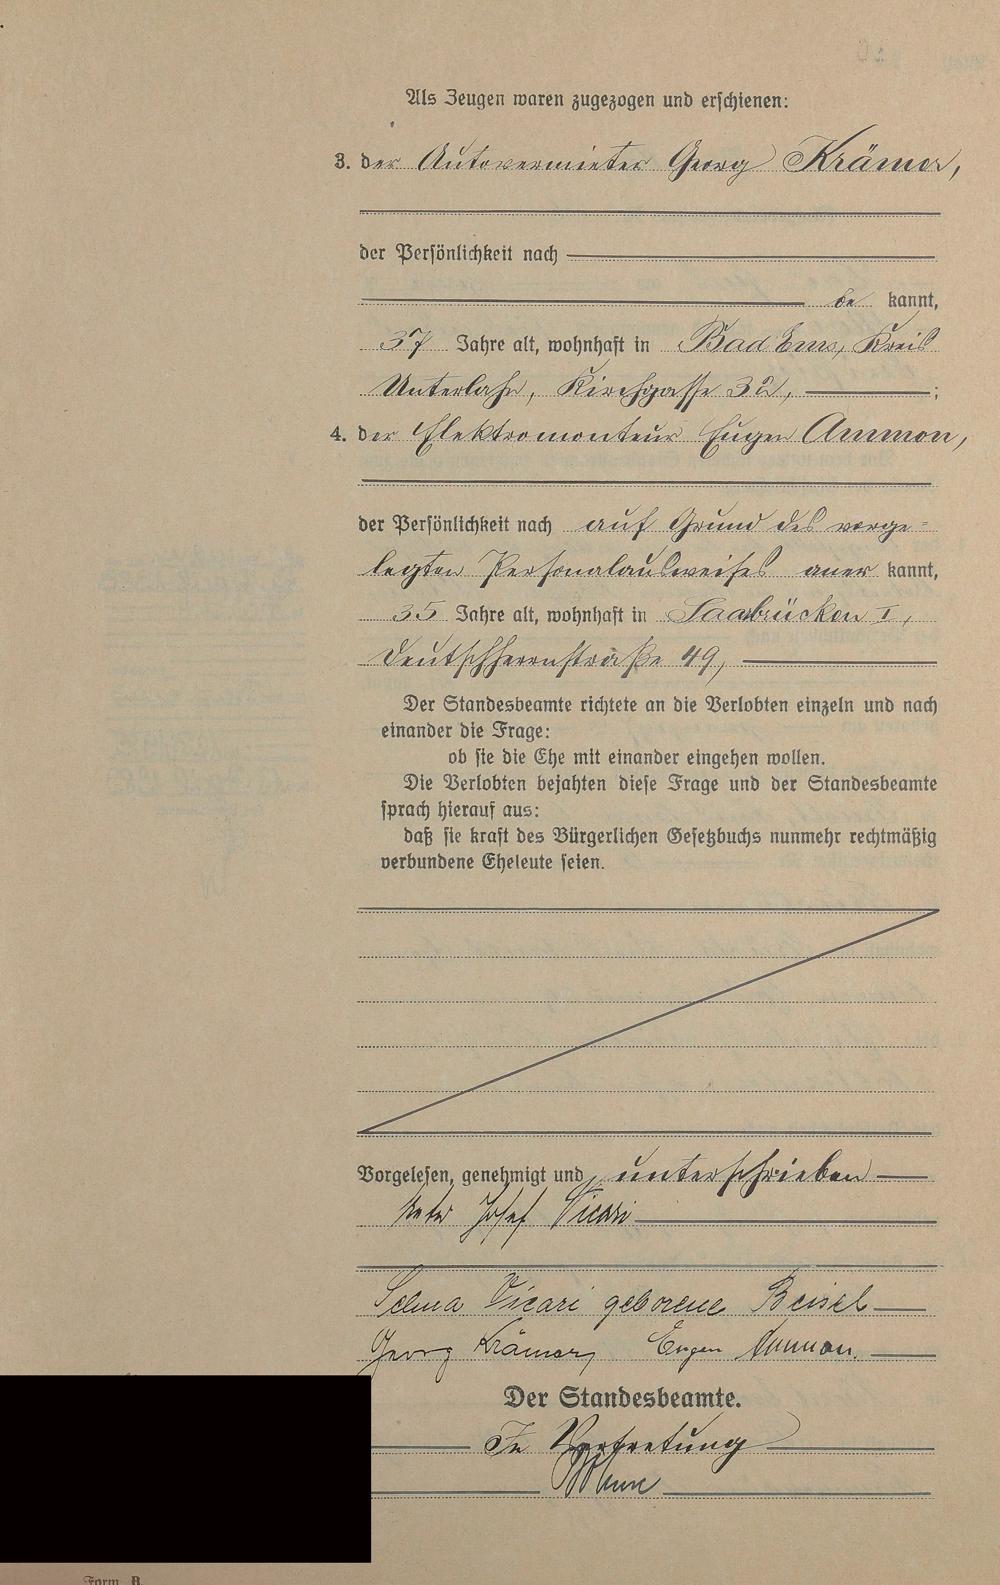 Als Zeugen waren zugezogen und erschienen:
3. der Autovermieter Georg Krämer,
der Persönlichkeit nach
be kannt,
37 Jahre alt, wohnhaft in Bad Ems, Kreis
Unterlahn, Kirchgasse 32, ;
4. der Elektromonteur Eugen Ammon,
der Persönlichkeit nach auf Grund des vorge=
legten Personalausweises aner kannt,
35 Jahre alt, wohnhaft in Saarbrücken I,
Deutschherrnstraße 49,
Der Standesbeamte richtete an die Verlobten einzeln und nach
einander die Frage:
ob sie die Ehe mit einander eingehen wollen.
Die Verlobten bejahten diese Frage und der Standesbeamte
sprach hierauf aus:
daß sie kraft des Bürgerlichen Gesetzbuchs nunmehr rechtmäßig
verbundene Eheleute seien.
Vorgelesen, genehmigt und unterschrieben
Peter Josef Vicari
Selma Vicari geborene Beisel
Georg Krämer, Eugen Ammon.
Der Standesbeamte.
In Vertretung
Form. B.